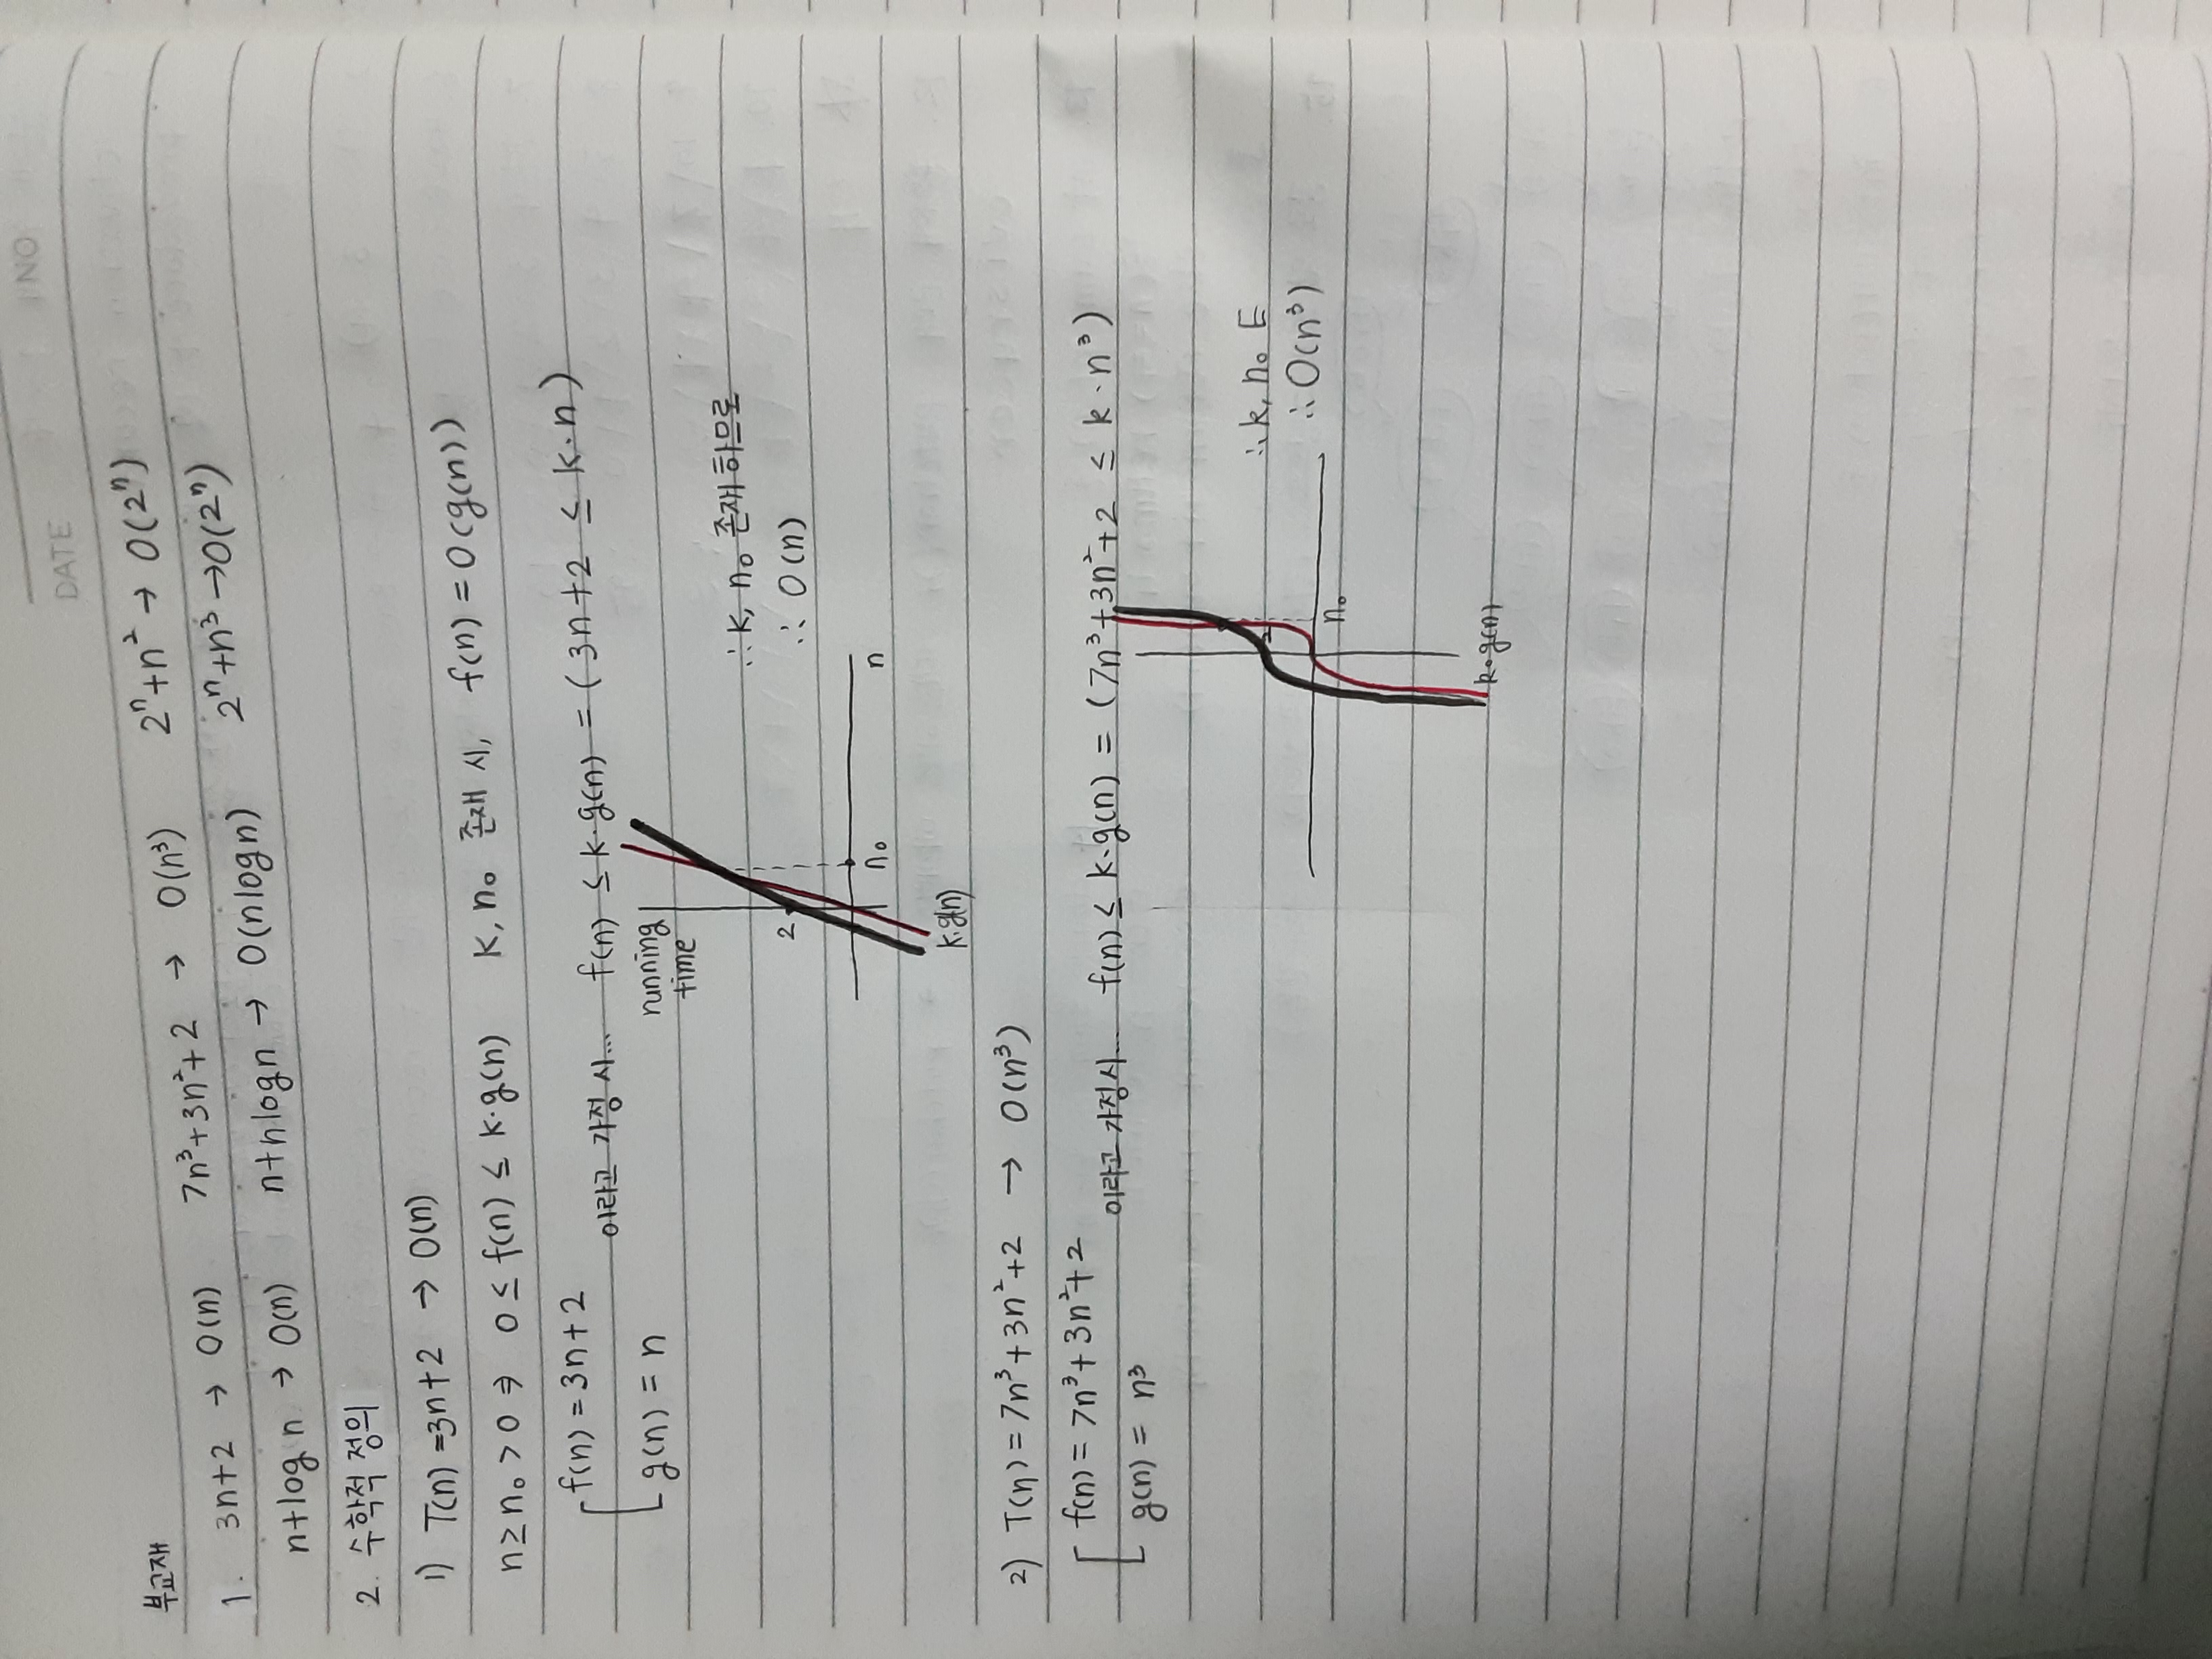 NO
DATE
부교재
1. 3n+2 → O(n) 7n³+3n²+2 → O(n³) 2ⁿ+n² → O(2ⁿ)
n+log n → O(n) n+nlogn → O(nlogn) 2ⁿ+n³ → O(2ⁿ)
2. 수학적 정의
1) T(n) = 3n+2 → O(n)
n ≥ n₀ > 0 ⇒ 0 ≤ f(n) ≤ k·g(n) k, n₀ 존재 시, f(n) = O(g(n))
f(n) = 3n+2
g(n) = n
이라고 가정 시... f(n) ≤ k·g(n) = (3n+2 ≤ k·n)
running
time
∴ k, n₀ 존재 하므로
2
∴ O(n)
n₀ n
k·g(n)
2) T(n) = 7n³+3n²+2 → O(n³)
f(n) = 7n³+3n²+2
g(n) = n³
이라고 가정시... f(n) ≤ k·g(n) = (7n³+3n²+2 ≤ k·n³)
2
∴ k, n₀ E
∴ O(n³)
n₀
k·g(n)